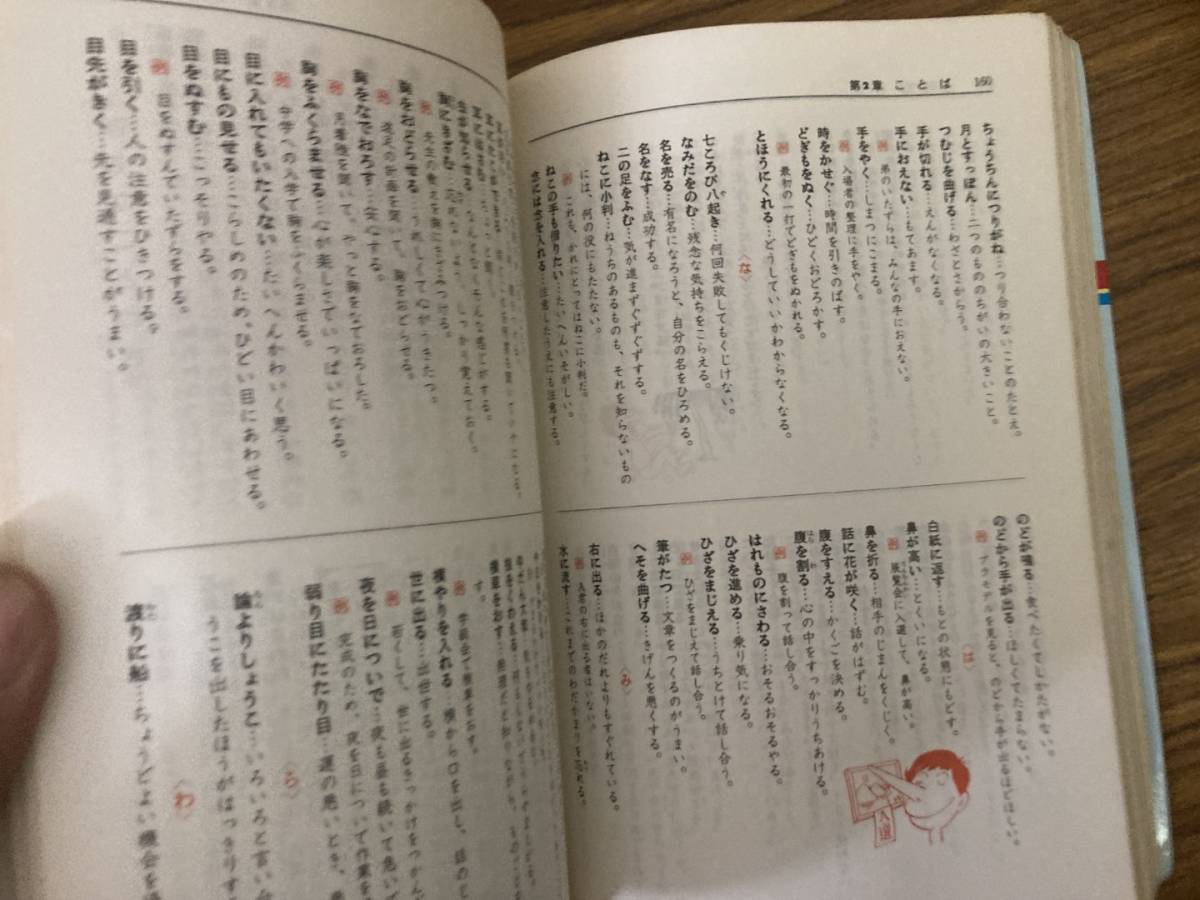 第2章 ことば 160
ちょうちんにつりがね…つり合わないことのたとえ。
月とすっぽん…二つのもののちがいの大きいこと。
つむじを曲げる…わざとさからう。
手が切れる…えんがなくなる。
手におえない…もてあます。
例 弟のいたずらは、みんなの手におえない。
手をやく…しまつにこまる。
例 入場者の整理に手をやく。
時をかせぐ…時間を引きのばす。
どぎもをぬく…ひどくおどろかす。
例 最初の一打でどぎもをぬかれる。
とほうにくれる…どうしていいかわからなくなる。
〈な〉
七ころび八起き…何回失敗してもくじけない。
なみだをのむ…残念な気持ちをこらえる。
名を売る…有名になろうと、自分の名をひろめる。
名をなす…成功する。
二の足をふむ…気が進まずぐずぐずする。
ねこに小判…ねうちのあるものも、それを知らないもの
には、何の役にもたたない。
例 これも、かれにとってはねこに小判だ。
ねこの手も借りたい…たいへんいそがしい。
念には念を入れる…注意したうえにも注意する。
のどが鳴る…食べたくてしかたがない。
のどから手が出る…ほしくてたまらない。
例 プラモデルを見ると、のどから手が出るほどほしい。
〈は〉
白紙に返す…もとの状態にもどす。
鼻が高い…とくいになる。
例 展覧会に入選して、鼻が高い。
鼻を折る…相手のじまんをくじく。
話に花が咲く…話がはずむ。
腹をすえる…かくごを決める。
腹を割る…心の中をすっかりうちあける。
例 腹を割って話し合う。
はれものにさわる…おそるおそるやる。
ひざを進める…乗り気になる。
ひざをまじえる…うちとけて話し合う。
例 ひざをまじえて話し合う。
筆がたつ…文章をつくるのがうまい。
へそを曲げる…きげんを悪くする。
〈み〉
右に出る…ほかのだれよりもすぐれている。
例 入君の右に出る者はいない。
水に流す…これまでのわだかまりを忘れる。
入選
胸にきざむ
例 先生の教えを胸にきざみつける。
胸をおどらせる…うれしくて心がうきたつ。
例 遠足の計画を聞いて、胸をおどらせる。
胸をなでおろす…安心する。
例 月着陸を聞いて、やっと胸をなでおろした。
胸をふくらませる…心が楽しさでいっぱいになる。
例 中学への入学で胸をふくらませる。
目に入れてもいたくない…たいへんかわいく思う。
目にもの見せる…こらしめのため、ひどい目にあわせる。
目をぬすむ…こっそりやる。
例 目をぬすんでいたずらをする。
目を引く…人の注意をひきつける。
目先がきく…先を見通すことがうまい。
横車をおす…無理だと知りながら、
す。
例 学級会で横車をおす。
横やりを入れる 横から口を出し、話のじ
世に出る…出世する。
例 若くして、世に出るきっかけをつかん
夜を日についで…夜も昼も続いて急いで
例 完成のため、夜を日について作業を
弱り目にたたり目…運の悪いとき、
〈ら〉
論よりしょうこ…いろいろと言い合
うこを出したほうがはっきりす
〈わ〉
渡りに船…ちょうどよい機会を